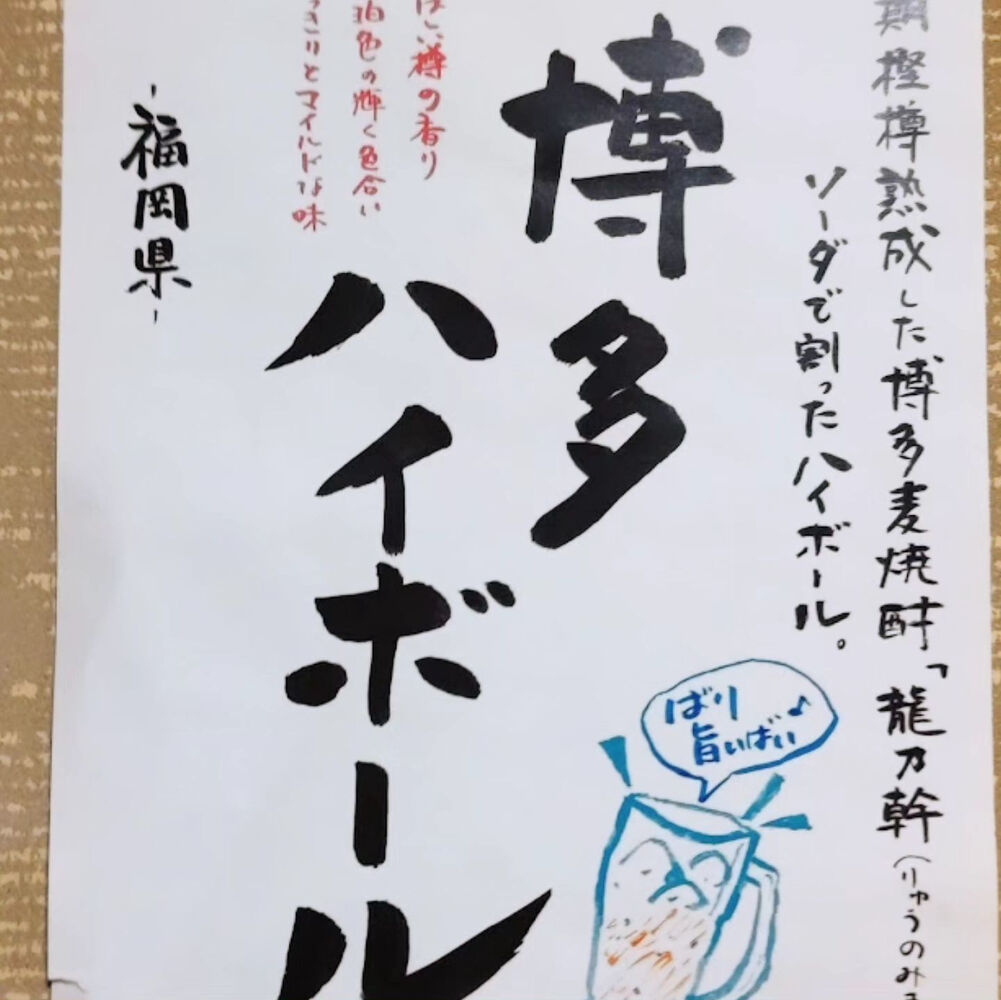 期樫樽熟成した博多麦焼酎「龍乃幹(りゅうのみ
ソーダで割ったハイボール。
博多
ハイボール
樽の香り
色の輝く色合い
きりとマイルドな味
-福岡県-
ばり
旨いばい♪